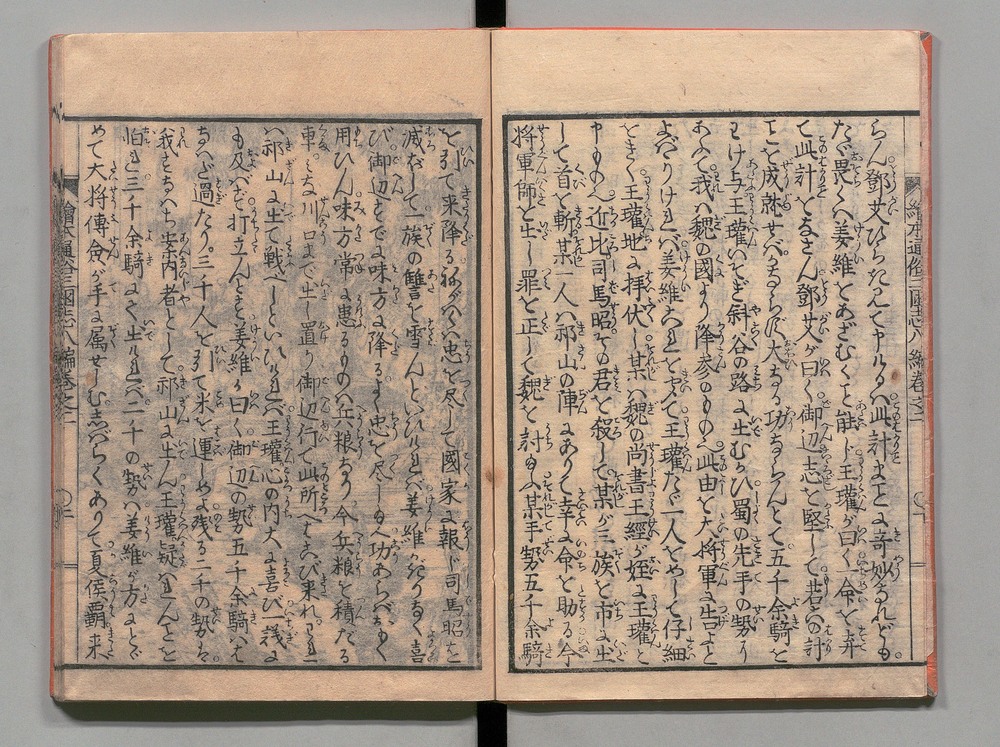 らん鄧艾ひらたえて申しけるハ此計まことに奇妙なれども
たゞ畏くハ姜維をあざむくこと能ハじ王瓘が曰く一命を棄
て此計をなさん鄧艾が曰く御辺志を堅して若この討
ことを成就せバかならず大なる功ならんとて五千余騎を
わけ与王瓘いそぎ斜谷の路に出むかひ蜀の先手の勢に
あふて我ハ魏の國より降参のもの此由を大将軍に告よと
よバハりけれバ姜維これをきいて王瓘たゞ一人をめして仔細
をきく王瓘地に拝伏し某ハ魏の尚書王經が姪王瓘と
申もの近比司馬昭その君を殺して某が三族を市に出
して首を斬某一人ハ祁山の陣にありて幸に命を助る今
将軍師を出し罪を正して魏を討玉ふ某手勢五千余騎
を引て来降る祢がハくハ忠を尽して國家に報じ司馬昭を
滅ぼして一族の讐を雪んといひけれバ姜維かぎりなく喜
び御辺すでに味方に降るよく忠を尽し玉へ功あらバおもく
用ひん味方常に患るものハ兵粮なり今兵粮を積たる
車ことごとく川口まで出し置り御辺行て此所へはこび来れわれ
ハ祁山に出て戦べしといひけれバ王瓘心の内大に喜び議に
も及バず打立んとす姜維が曰く御辺の勢五千余騎ハ
なはだ過たり三千人を引て米を運しめよ残る二千の勢を
我すなハち案内者として祁山に出ん王瓘疑れんことを
怕と三千余騎にて出けれバ二千の勢ハ姜維が方にとゞ
めて大将傅僉が手に属せしむ志バらくありて夏侯覇来
繪本通俗三國志八編巻之二
繪本通俗三國志八編巻之二